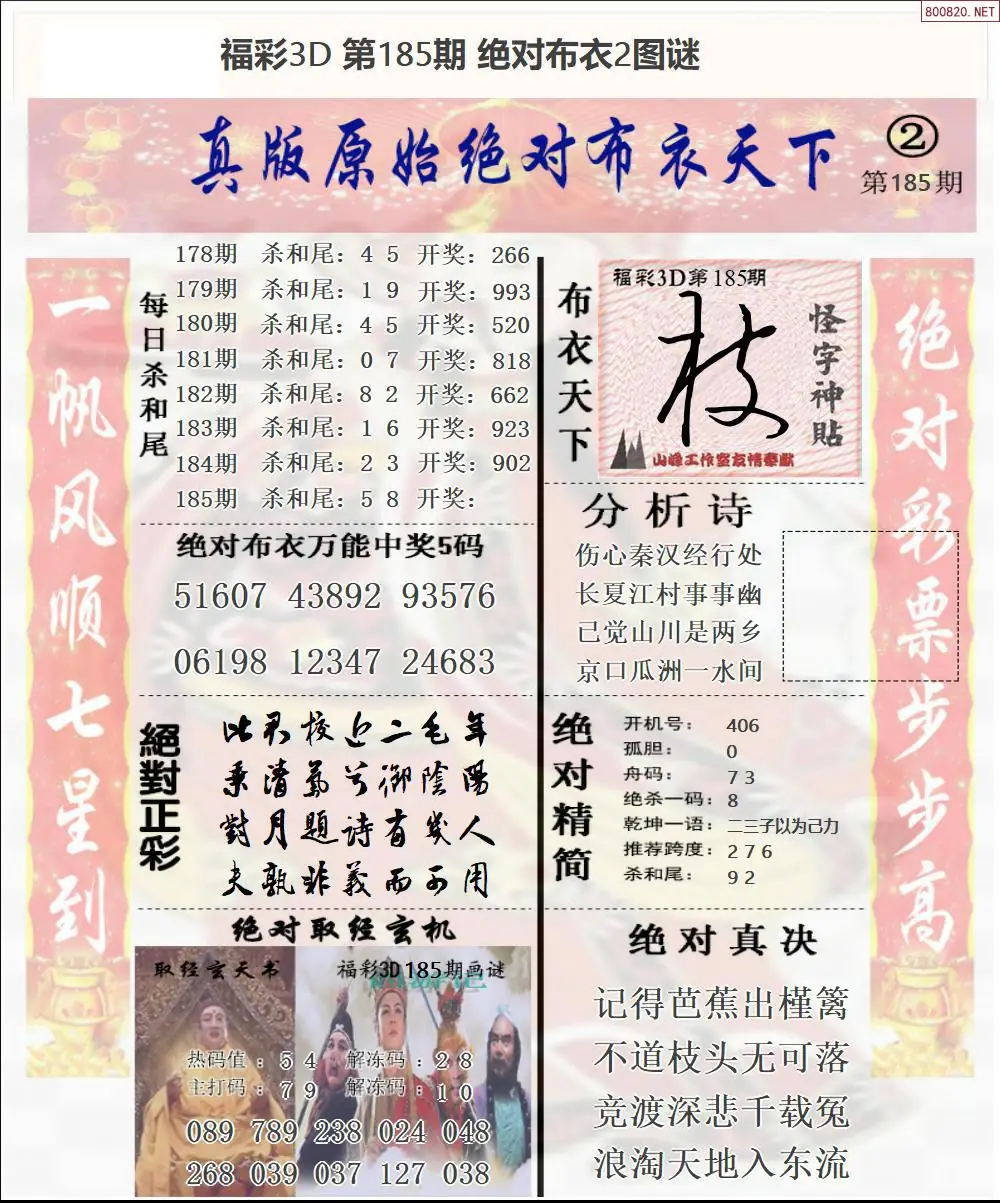 800820.NET
福彩3D 第185期 绝对布衣2图谜
真版原始绝对布衣天下
②
第185期
一帆风顺七星到
每日杀和尾
178期 杀和尾：4 5 开奖：266
179期 杀和尾：1 9 开奖：993
180期 杀和尾：4 5 开奖：520
181期 杀和尾：0 7 开奖：818
182期 杀和尾：8 2 开奖：662
183期 杀和尾：1 6 开奖：923
184期 杀和尾：2 3 开奖：902
185期 杀和尾：5 8 开奖：
绝对布衣万能中奖5码
51607 43892 93576
06198 12347 24683
絕對正彩
此君校近二毛年
乘清氣兮御陰陽
對月題詩有幾人
夫孰非義而可用
绝对取经玄机
取经玄天书
福彩3D185期画谜
热码值：5 4 解冻码：2 8
主打码：7 9 解冻码：1 0
089 789 238 024 048
268 039 037 127 038
布衣天下
福彩3D第185期
枝
怪字神贴
山峰工作室友情奉献
分析诗
伤心秦汉经行处
长夏江村事事幽
已觉山川是两乡
京口瓜洲一水间
绝对精简
开机号：406
孤胆：0
舟码：7 3
绝杀一码：8
乾坤一语：二三子以为己力
推荐跨度：2 7 6
杀和尾：9 2
绝对真决
记得芭蕉出槿篱
不道枝头无可落
竞渡深悲千载冤
浪淘天地入东流
绝对彩票步步高